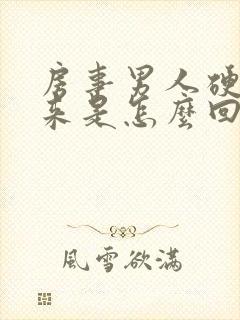 房事男人硬
来是怎麼回
風雪欲滿